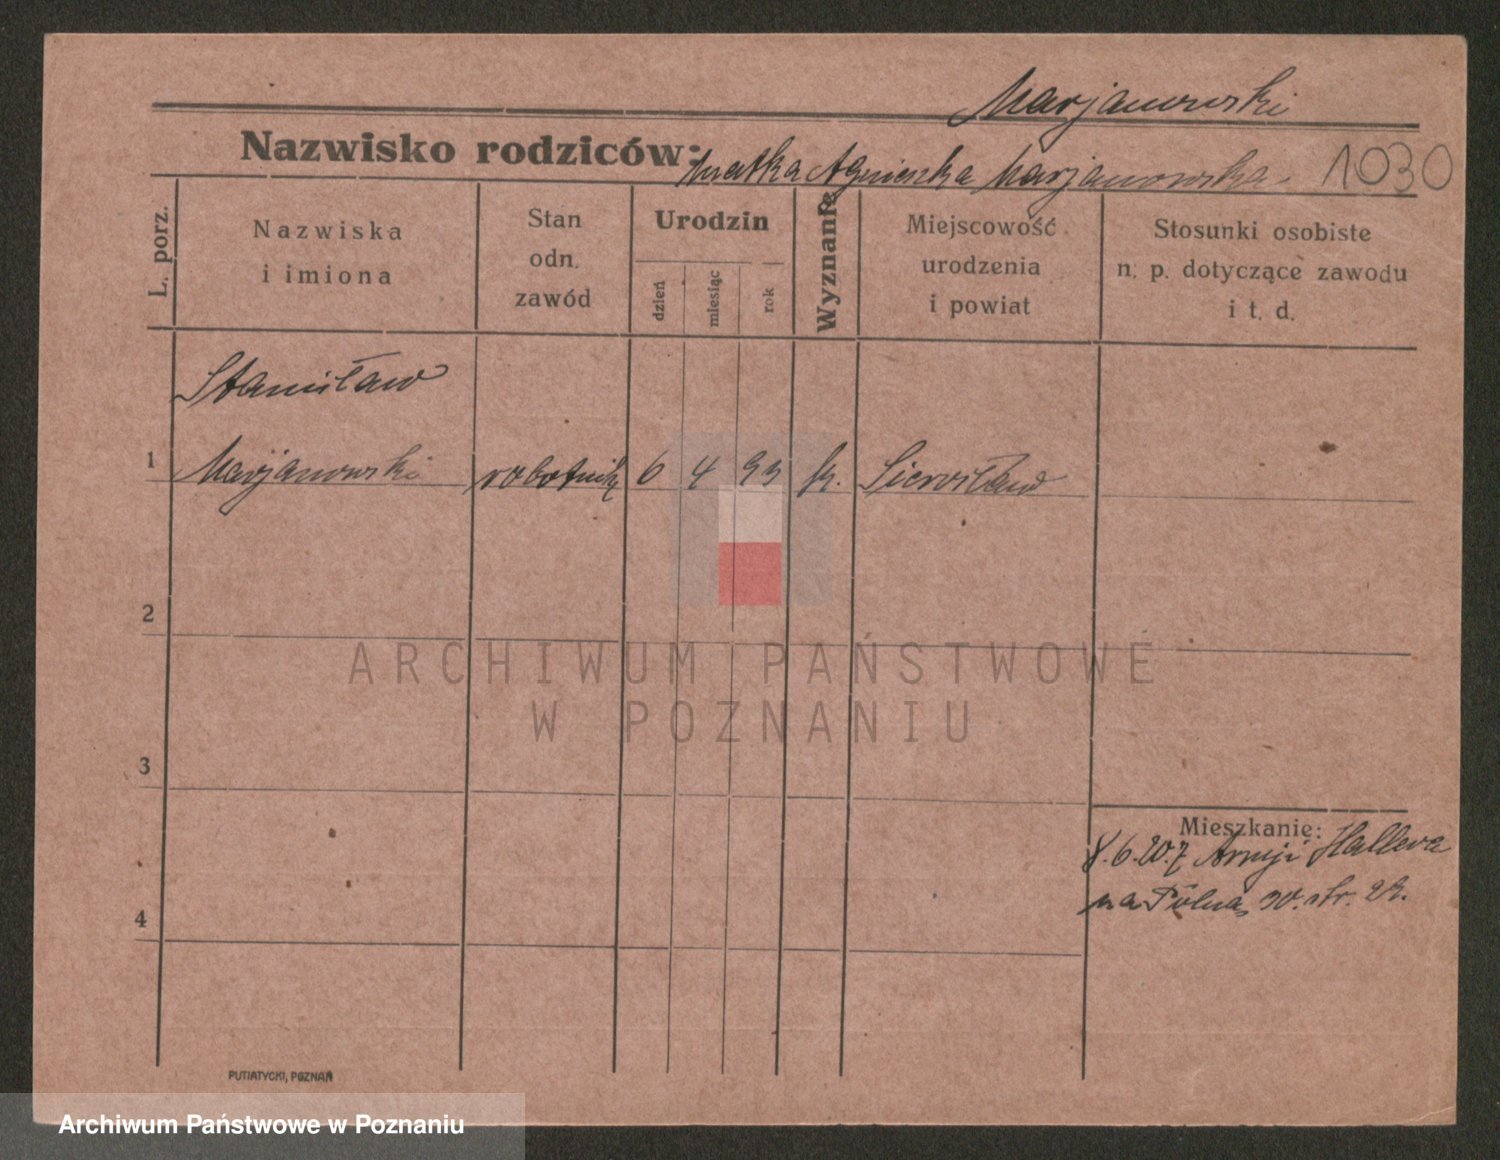 Marjanowski
Nazwisko rodziców: matka Agnieszka Marjanowska 1030
L. porz.
Nazwiska
i imiona
Stan
odn.
zawód
Urodzin
dzień
miesiąc
rok
Wyznanie
Miejscowość
urodzenia
i powiat
Stosunki osobiste
n. p. dotyczące zawodu
i t. d.
Stanisław
1 Marjanowski robotnik 6 4 93 k. Sierosław
2
ARCHIWUM PAŃSTWOWE
W POZNANIU
3
Mieszkanie:
8.6.20. z Armji Hallera
na Polną 30. str. 29.
4
PUTIATYCKI, POZNAŃ
Archiwum Państwowe w Poznaniu